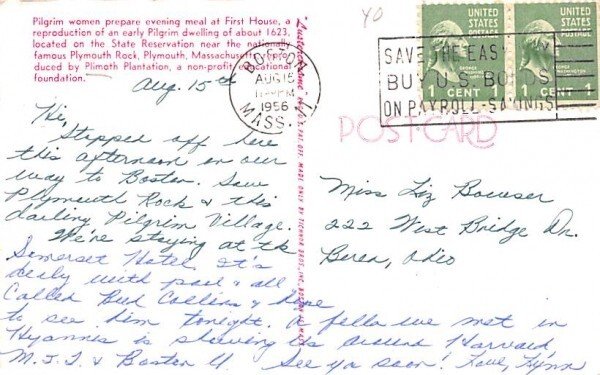 Pilgrim women prepare evening meal at First House, a
reproduction of an early Pilgrim dwelling of about 1623,
located on the State Reservation near the nationally
famous Plymouth Rock, Plymouth, Massachusetts. Repro-
duced by Plimoth Plantation, a non-profit educational
foundation.
Aug. 15th
Hi,
Stopped off here
this afternoon on our
way to Boston. Saw
Plymouth Rock & this
darling Pilgrim Village.
We're staying at the
Somerset Hotel. It's
with pool & all.
Called Bud Collins & hope
to see him tonight. A fella we met in
Hyannis is showing us around Harvard,
M.I.T. & Boston U. See ya soon! Love, Lynn
MADE ONLY BY TICHNOR BROS., INC.
BOSTON
AUG 15
PM
1956
MASS.
40
UNITED
STATES
POSTAGE
1 CENT 1
UNITED
STATES
POSTAGE
1 CENT 1
SAVE THE EASY WAY
BUY U.S. BONDS
ON PAYROLL SAVINGS
POST CARD
Miss Liz Bowser
222 West Bridge Dr.
Berea, Ohio